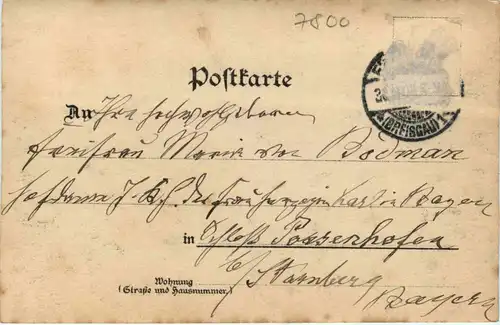 7800
Postkarte
(BREISGAU) 1
An Ihre Hochwohlgeboren
Freifrau Maria von Bodman
Hofdame I. K. H. der Frau Herzogin Karl in Bayern
in Schloß Possenhofen
b/ Starnberg
Wohnung
(Straße und Hausnummer)
Bayern